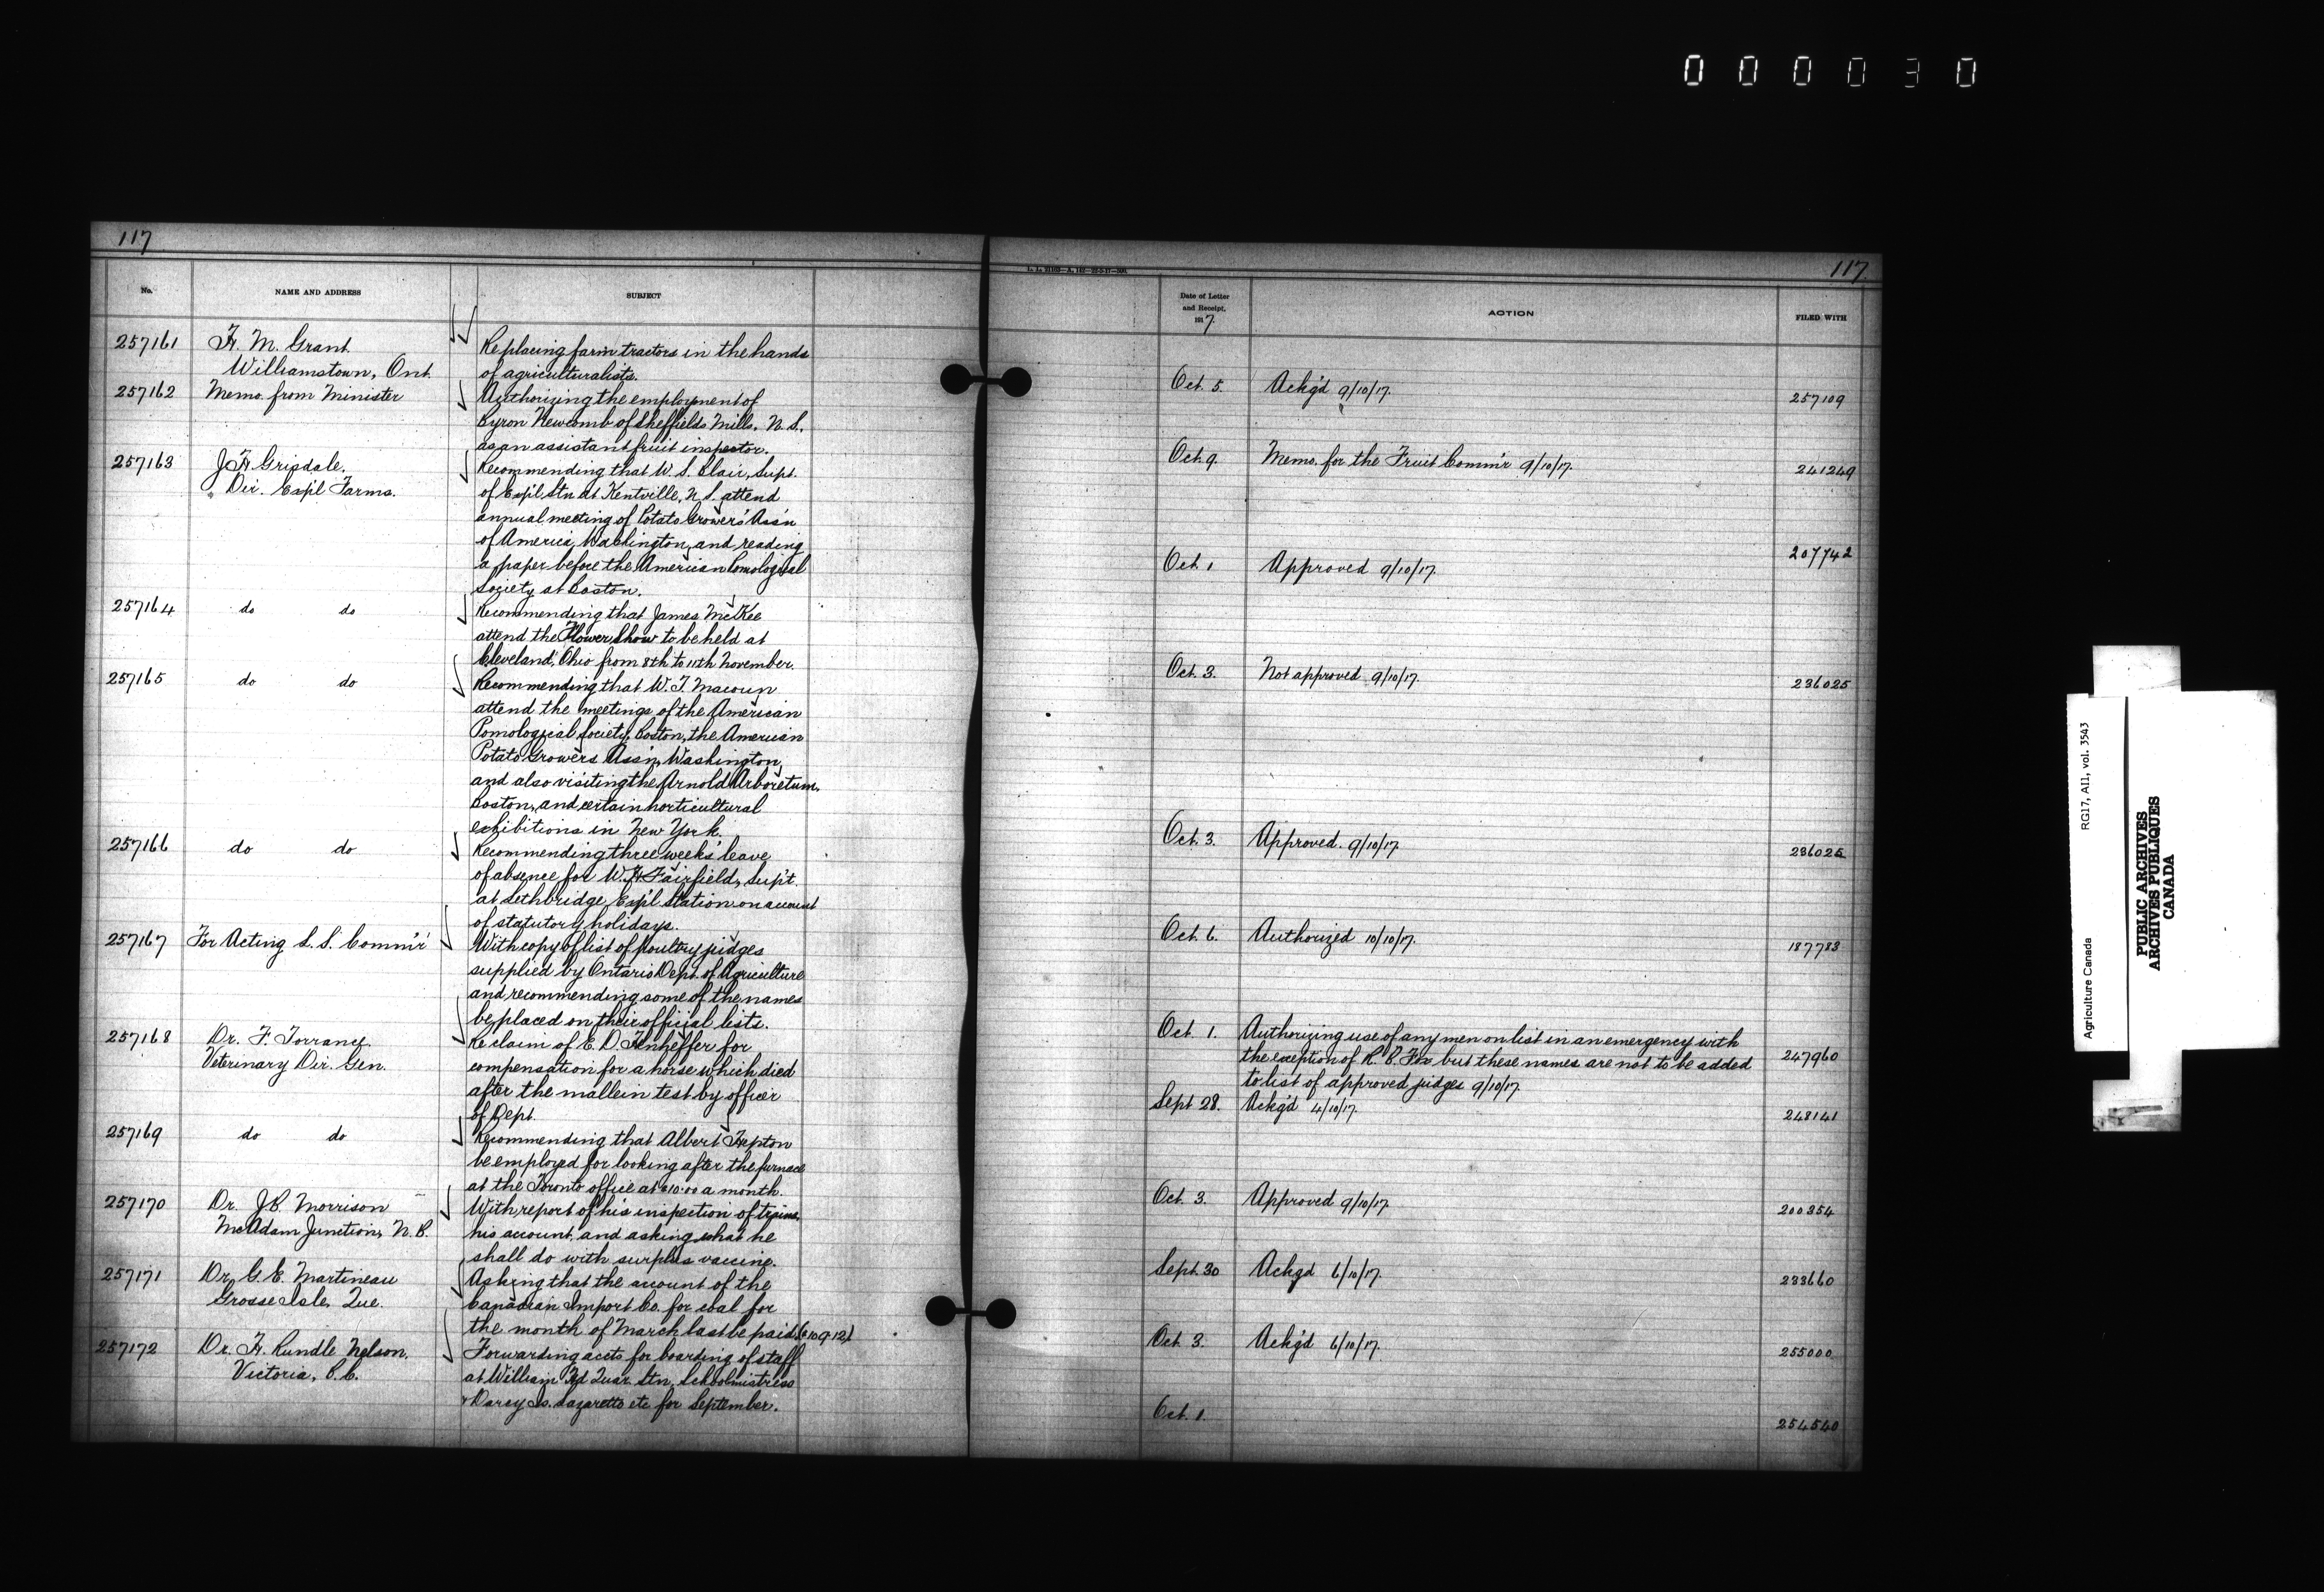 000030
117
No. NAME AND ADDRESS SUBJECT
257161 H. M. Grant Replacing farm tractors in the hands
Williamstown, Ont. of agriculturalists.
257162 Memo. from Minister Authorizing the employment of
Byron Newcomb of Sheffields Mills, N.S.
as an assistant fruit inspector.
257163 J H Grisdale, Recommending that W. S. Blair, Supt.
Dir. Exp'l Farms. of Exp'l Stn at Kentville, N.S. attend
annual meeting of Potato Growers' Ass'n
of America, Washington, and reading
a paper before the American Pomological
Society at Boston.
257164 do do Recommending that James McKee
attend the Flower Show to be held at
Cleveland, Ohio from 8th to 11th November.
257165 do do Recommending that W. T. Macoun
attend the meetings of the American
Pomological Society, Boston, the American
Potato Growers Ass'n, Washington,
and also visiting the Arnold Arboretum,
Boston, and certain horticultural
exhibitions in New York.
257166 do do Recommending three weeks' leave
of absence for W. H. Fairfield, Sup't.
at Lethbridge Exp'l Station on account
of statutory holidays.
257167 For Acting L. S. Comm'r With copy of list of poultry judges
supplied by Ontario Dept. of Agriculture
and recommending some of the names
be placed on their official lists.
257168 Dr. F. Torrance Re claim of E. D. for
Veterinary Dir. Gen. compensation for a horse which died
after the mallein test by officer
of Dept.
257169 do do Recommending that Albert Hepton
be employed for looking after the furnace
at the Toronto office at $10.00 a month.
257170 Dr. J.B. Morrison With report of his inspection of trains,
McAdam Junction, N.B. his account, and asking what he
shall do with surplus vaccine.
257171 Dr. G. E. Martineau Asking that the account of the
Grosse Isle, Que. Canadian Import Co. for coal for
the month of March last be paid.
257172 Dr. H. Rundle Nelson. Forwarding accts for boarding of staff
Victoria, B.C. at William Hd Quar. Stn, Schoolmistress
& Darcy Is. Lazaretto etc for September.
117
Date of Letter
and Receipt,
1917. ACTION FILED WITH
Oct. 5. Ackg'd 9/10/17. 257109
Oct. 9. Memo. for the Fruit Comm'r 9/10/17. 241249
Oct. 1 Approved 9/10/17. 207742
Oct. 3. Not approved 9/10/17. 236025
Oct. 3. Approved. 9/10/17. 236025
Oct. 6. Authorized 10/10/17. 187783
Oct. 1. Authorizing use of any men on list in an emergency with
the exception of R. E. Fox but these names are not to be added 247960
to list of approved judges 9/10/17.
Sept 28. Ackg'd 4/10/17. 248141
Oct. 3. Approved 9/10/17. 200354
Sept. 30 Ackgd 6/10/17. 233660
Oct. 3. Ackg'd 6/10/17. 255000
Oct. 1. 254540
Agriculture Canada RG17, A11, vol. 3543
PUBLIC ARCHIVES
ARCHIVES PUBLIQUES
CANADA